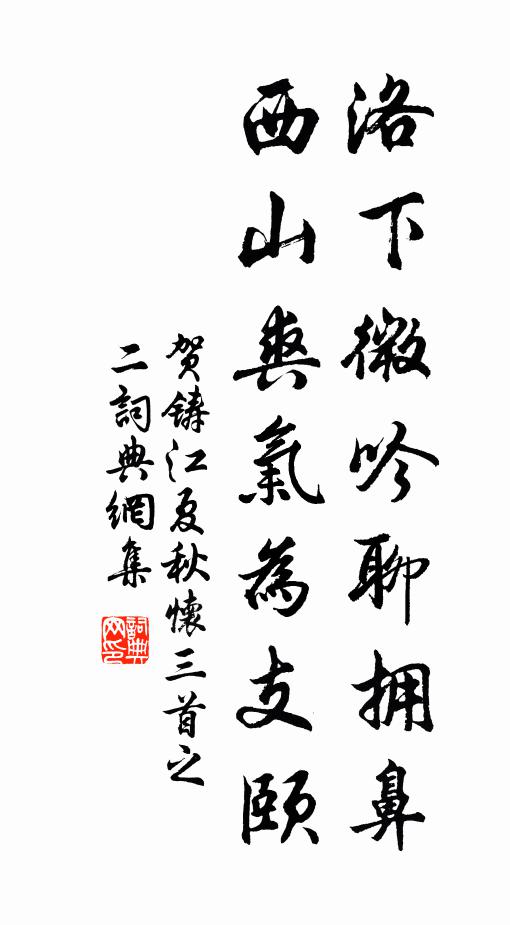 洛下微吟聊拥鼻
西山爽氣為支頤
贺铸江夏秋懷三首之
二詞典網集
詞典
网印